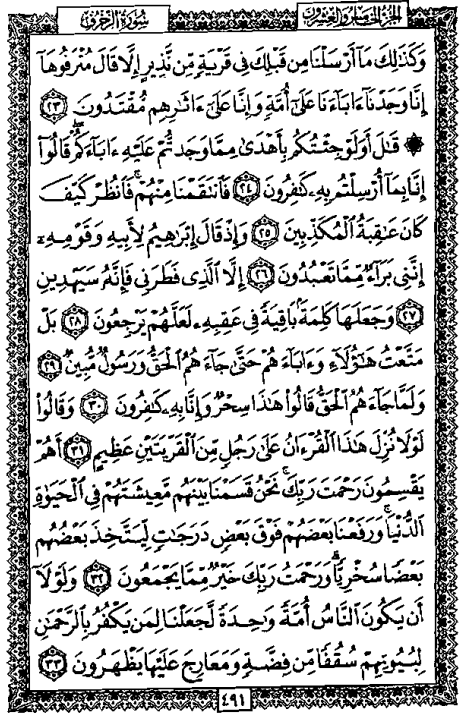 سُورَةُ الزُّخْرُفِ
الجُزءُ الخَامِسُ وَالعِشْرُونَ
وَكَذَٰلِكَ مَآ أَرْسَلْنَا مِن قَبْلِكَ فِى قَرْيَةٍ مِّن نَّذِيرٍ إِلَّا قَالَ مُتْرَفُوهَآ
إِنَّا وَجَدْنَآ ءَابَآءَنَا عَلَىٰٓ أُمَّةٍ وَإِنَّا عَلَىٰٓ ءَاثَٰرِهِم مُّقْتَدُونَ ٢٣
۞ قَٰلَ أَوَلَوْ جِئْتُكُم بِأَهْدَىٰ مِمَّا وَجَدتُّمْ عَلَيْهِ ءَابَآءَكُمْ ۖ قَالُوٓا۟
إِنَّا بِمَآ أُرْسِلْتُم بِهِۦ كَٰفِرُونَ ٢٤ فَٱنتَقَمْنَا مِنْهُمْ ۖ فَٱنظُرْ كَيْفَ
كَانَ عَٰقِبَةُ ٱلْمُكَذِّبِينَ ٢٥ وَإِذْ قَالَ إِبْرَٰهِيمُ لِأَبِيهِ وَقَوْمِهِۦٓ
إِنَّنِى بَرَآءٌ مِّمَّا تَعْبُدُونَ ٢٦ إِلَّا ٱلَّذِى فَطَرَنِى فَإِنَّهُۥ سَيَهْدِينِ
٢٧ وَجَعَلَهَا كَلِمَةًۢ بَاقِيَةً فِى عَقِبِهِۦ لَعَلَّهُمْ يَرْجِعُونَ ٢٨ بَلْ
مَتَّعْتُ هَٰٓؤُلَآءِ وَءَابَآءَهُمْ حَتَّىٰ جَآءَهُمُ ٱلْحَقُّ وَرَسُولٌ مُّبِينٌ ٢٩
وَلَمَّا جَآءَهُمُ ٱلْحَقُّ قَالُوا۟ هَٰذَا سِحْرٌ وَإِنَّا بِهِۦ كَٰفِرُونَ ٣٠ وَقَالُوا۟
لَوْلَا نُزِّلَ هَٰذَا ٱلْقُرْءَانُ عَلَىٰ رَجُلٍ مِّنَ ٱلْقَرْيَتَيْنِ عَظِيمٍ ٣١ أَهُمْ
يَقْسِمُونَ رَحْمَتَ رَبِّكَ ۚ نَحْنُ قَسَمْنَا بَيْنَهُم مَّعِيشَتَهُمْ فِى ٱلْحَيَوٰةِ
ٱلدُّنْيَا ۚ وَرَفَعْنَا بَعْضَهُمْ فَوْقَ بَعْضٍ دَرَجَٰتٍ لِّيَتَّخِذَ بَعْضُهُم
بَعْضًا سُخْرِيًّا ۗ وَرَحْمَتُ رَبِّكَ خَيْرٌ مِّمَّا يَجْمَعُونَ ٣٢ وَلَوْلَآ
أَن يَكُونَ ٱلنَّاسُ أُمَّةً وَٰحِدَةً لَّجَعَلْنَا لِمَن يَكْفُرُ بِٱلرَّحْمَٰنِ
لِبُيُوتِهِمْ سُقُفًا مِّن فِضَّةٍ وَمَعَارِجَ عَلَيْهَا يَظْهَرُونَ ٣٣
٤٩١